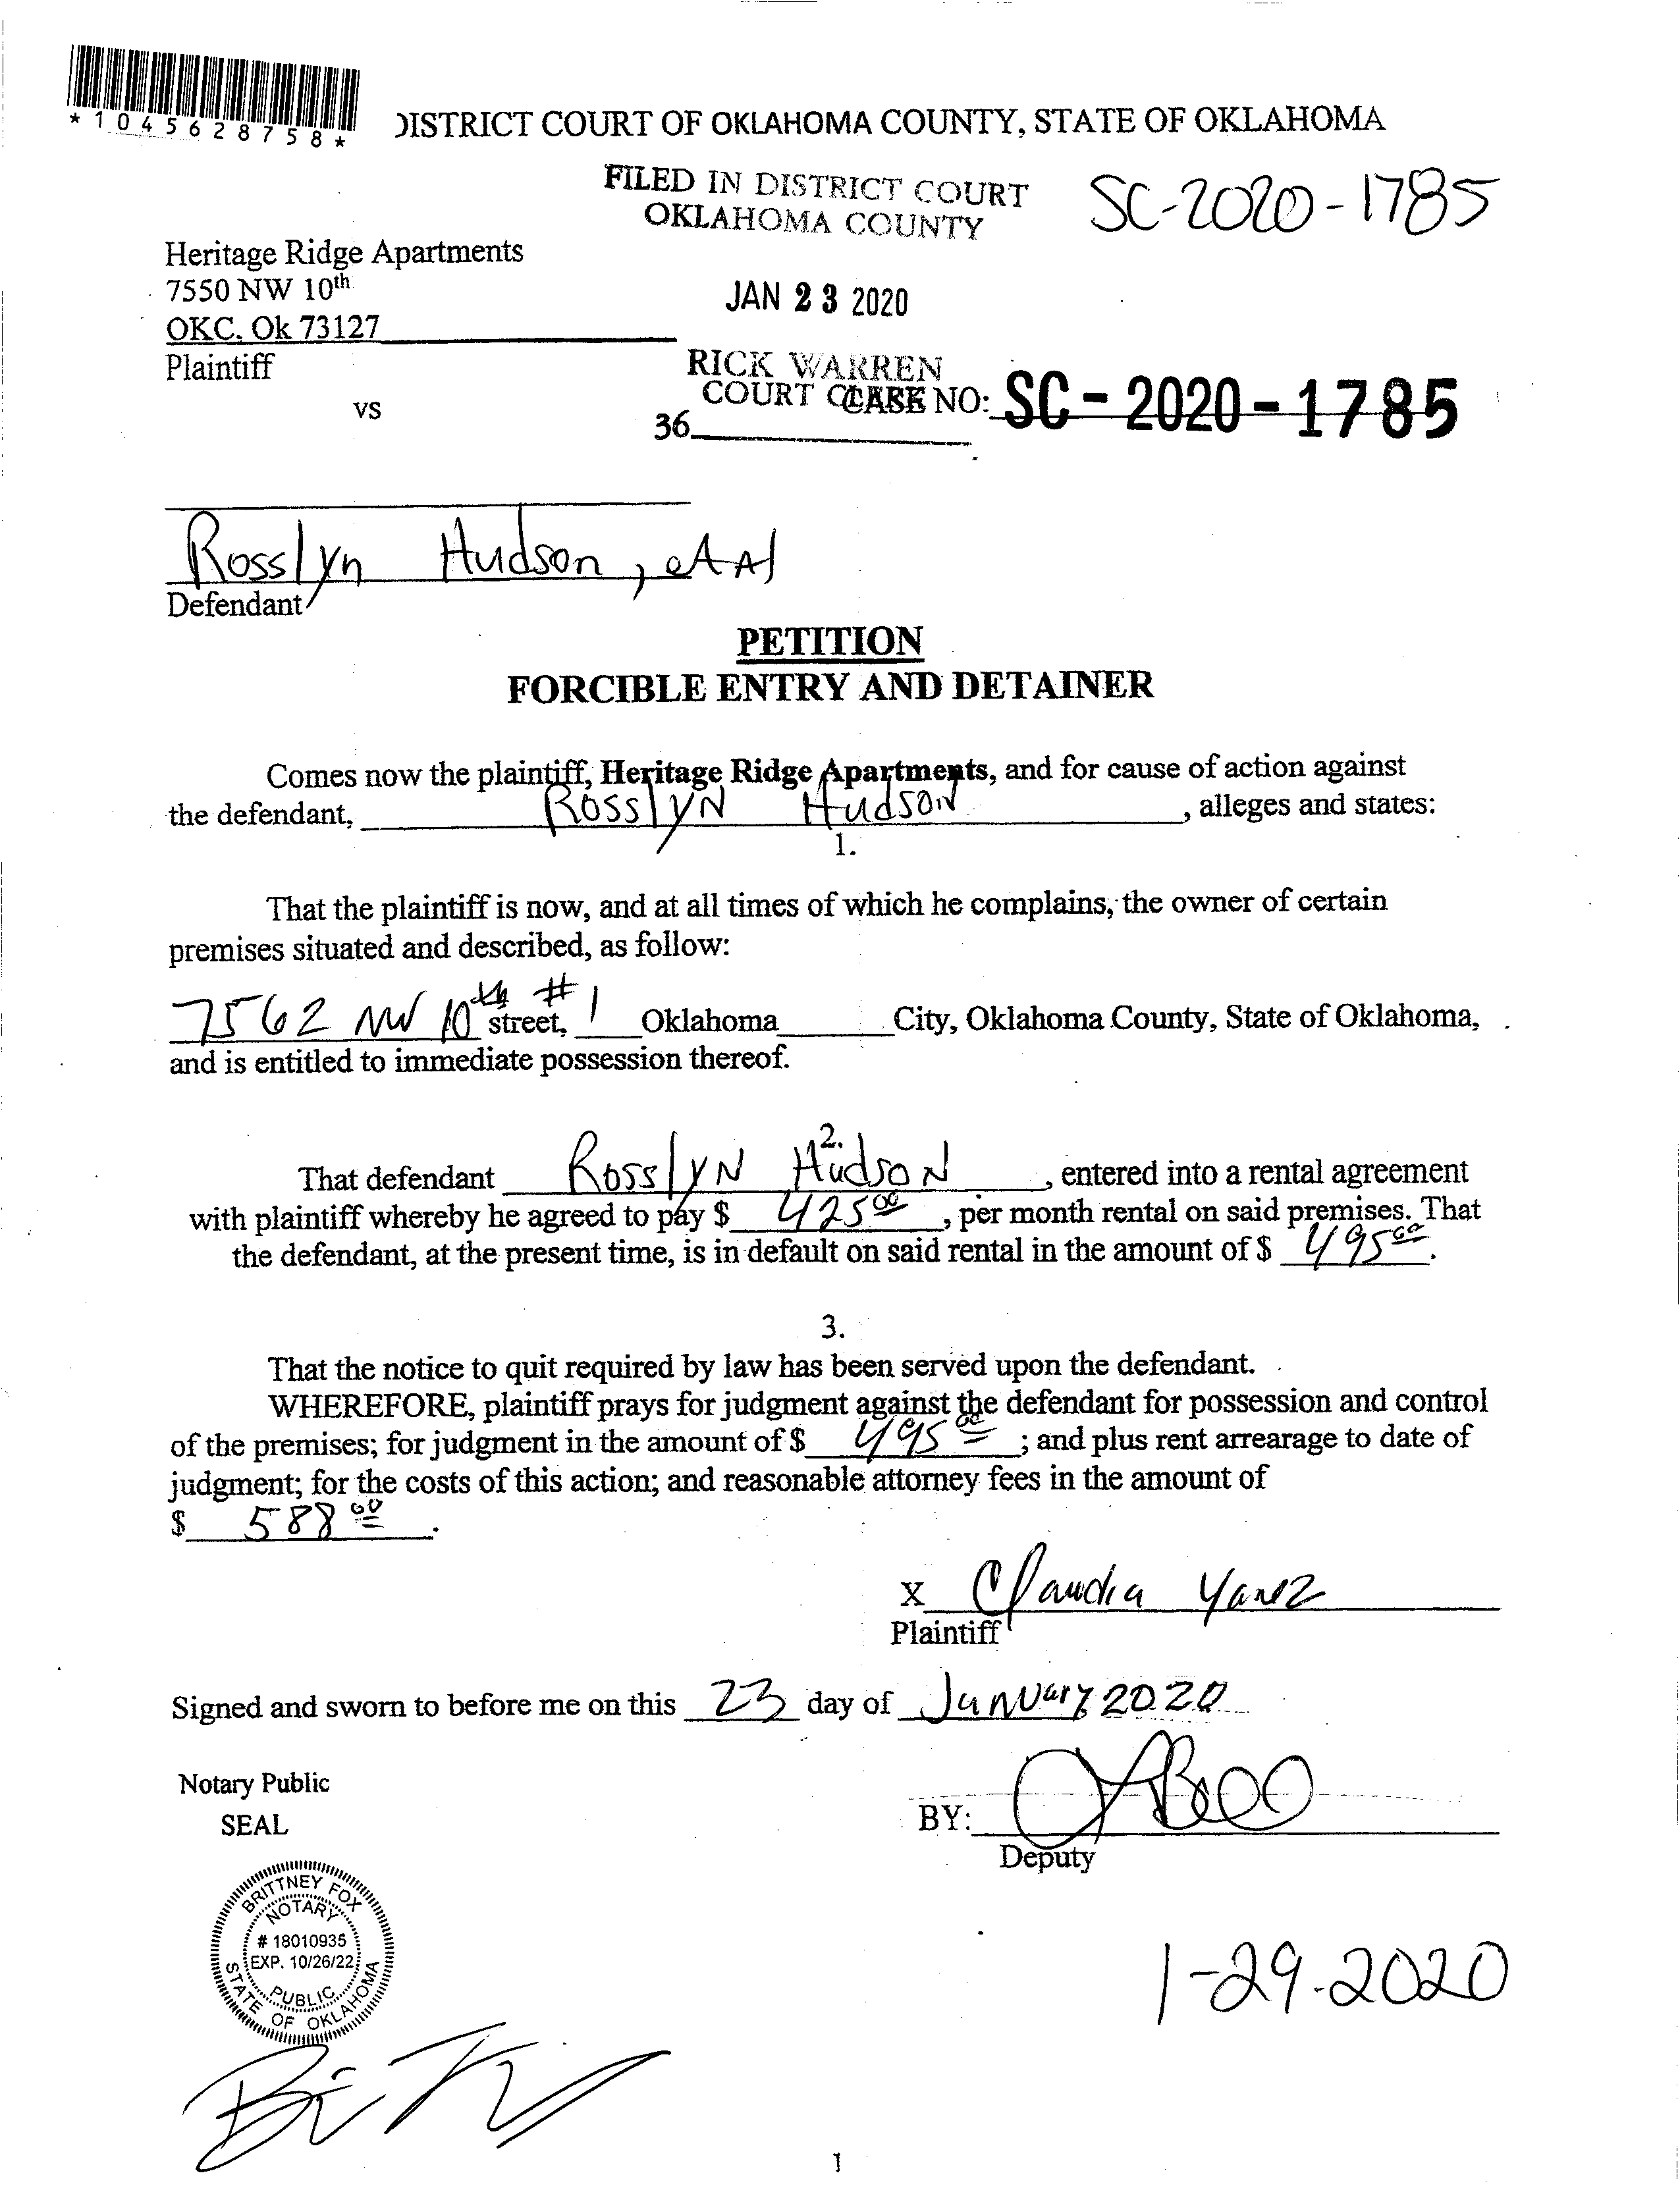 *1045628758*
DISTRICT COURT OF OKLAHOMA COUNTY, STATE OF OKLAHOMA
FILED IN DISTRICT COURT
OKLAHOMA COUNTY
SC-2020-1785
Heritage Ridge Apartments
7550 NW 10th
OKC, Ok 73127
JAN 23 2020
Plaintiff
RICK WARREN
COURT CLERK
CASE NO: SC-2020-1785
vs
36
Rosslyn Hudson, et Al
Defendant
PETITION
FORCIBLE ENTRY AND DETAINER
Comes now the plaintiff, Heritage Ridge Apartments, and for cause of action against
the defendant, Rosslyn Hudson, alleges and states:
1.
That the plaintiff is now, and at all times of which he complains, the owner of certain
premises situated and described, as follow:
7562 NW 10th street, #1 Oklahoma City, Oklahoma County, State of Oklahoma,
and is entitled to immediate possession thereof.
2.
That defendant Rosslyn Hudson, entered into a rental agreement
with plaintiff whereby he agreed to pay $ 425 00, per month rental on said premises. That
the defendant, at the present time, is in default on said rental in the amount of $ 495 00.
3.
That the notice to quit required by law has been served upon the defendant.
WHEREFORE, plaintiff prays for judgment against the defendant for possession and control
of the premises; for judgment in the amount of $ 495 00; and plus rent arrearage to date of
judgment; for the costs of this action; and reasonable attorney fees in the amount of
$ 588 00.
X Claudia Yanez
Plaintiff
Signed and sworn to before me on this 23 day of January 2020
Notary Public
SEAL
BY:
Deputy
BRITTNEY FOX
NOTARY
# 18010935
EXP. 10/26/22
PUBLIC
STATE OF OKLAHOMA
1-29-2020
1